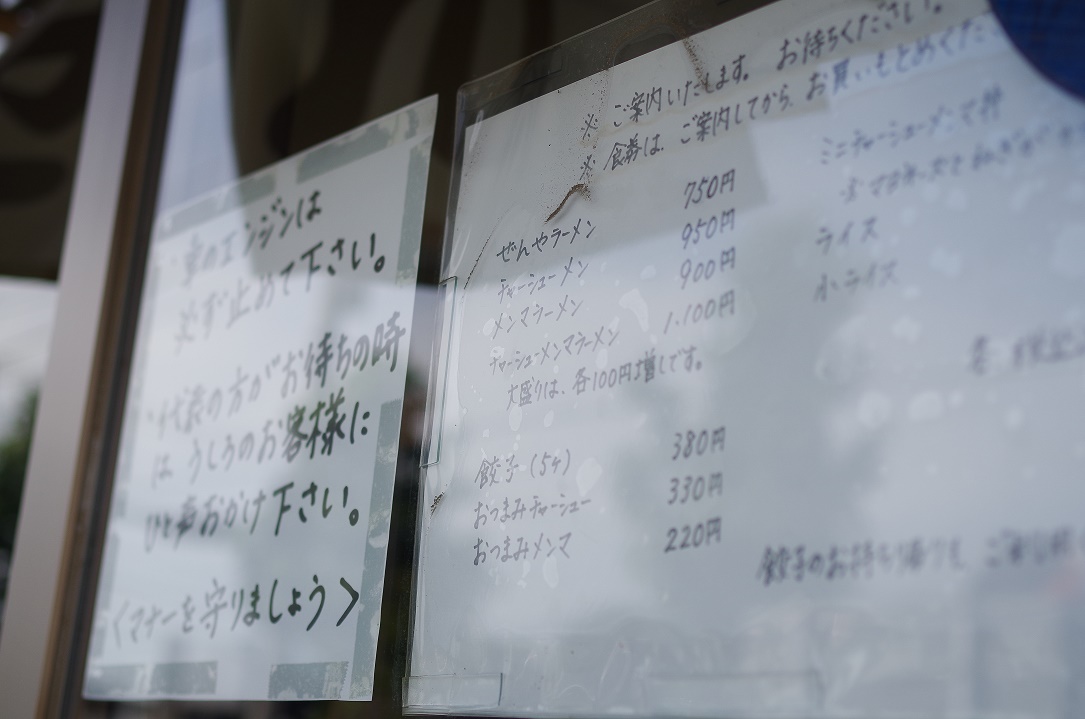 車のエンジンは
必ず止めて下さい。
代表の方がお待ちの時
は うしろのお客様に
ひと声おかけ下さい。
〈マナーを守りましょう〉
※ ご案内いたします。 お待ちください。
※ 食券は、ご案内してから、お買いもとめくだ
ぜんやラーメン 750円
チャーシューメン 950円
メンマラーメン 900円
チャーシューメンマラーメン 1.100円
大盛りは、各100円増しです。
餃子 (5ヶ) 380円
おつまみチャーシュー 330円
おつまみメンマ 220円
ミニチャーシューメンマ丼
ライス
小ライス
餃子のお持ち帰りも